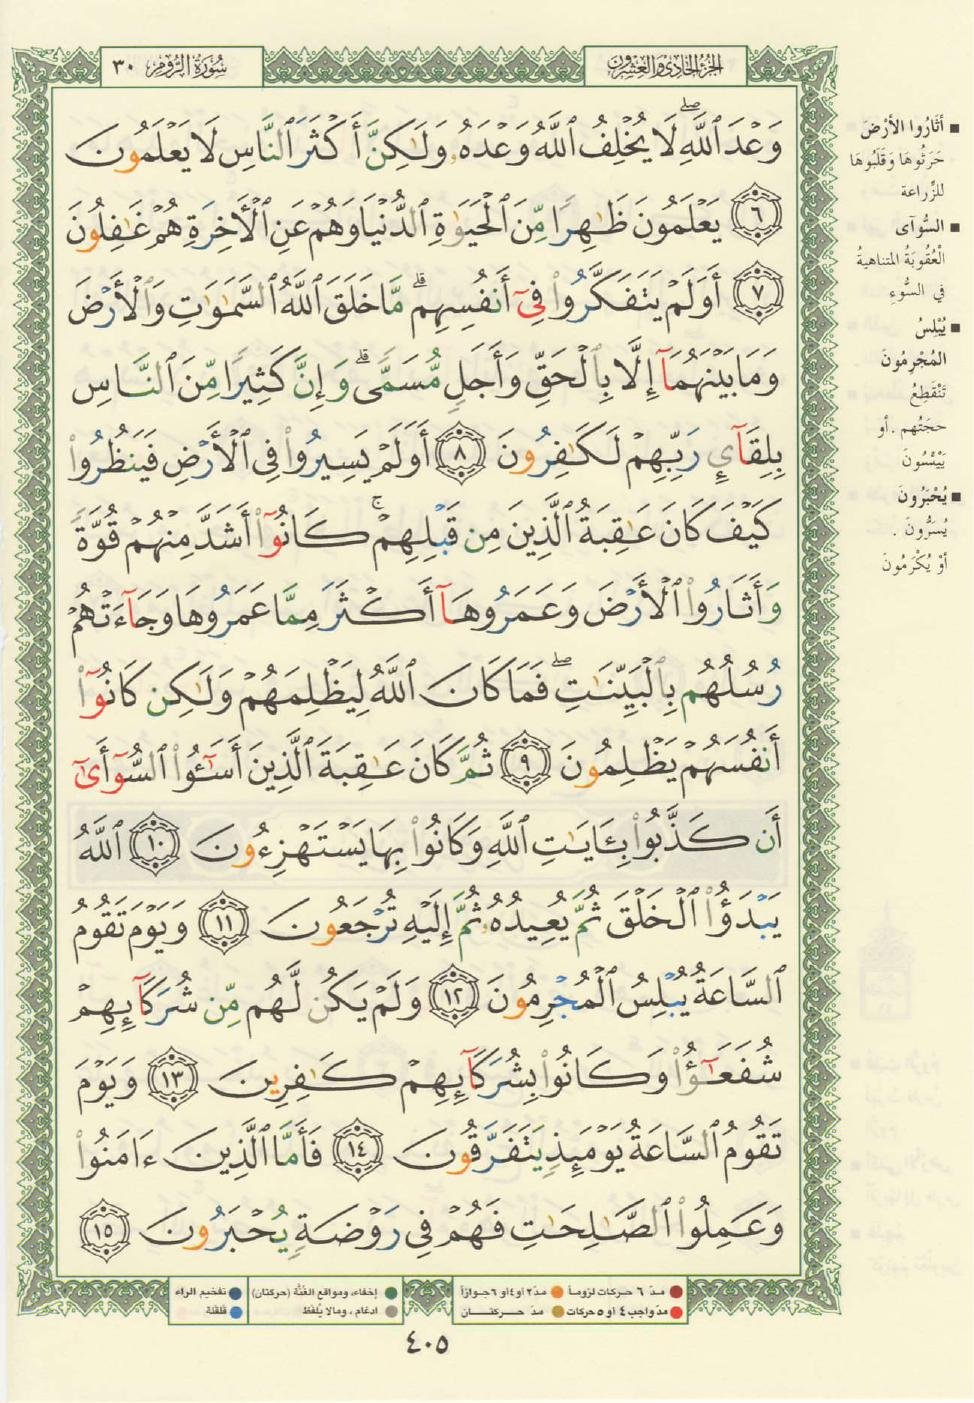 الجزء الحادي والعشرون
سورة الروم ٣٠
وَعْدَ ٱللَّهِ ۖ لَا يُخْلِفُ ٱللَّهُ وَعْدَهُۥ وَلَـٰكِنَّ أَكْثَرَ ٱلنَّاسِ لَا يَعْلَمُونَ
٦ يَعْلَمُونَ ظَـٰهِرًا مِّنَ ٱلْحَيَوٰةِ ٱلدُّنْيَا وَهُمْ عَنِ ٱلْـَٔاخِرَةِ هُمْ غَـٰفِلُونَ
٧ أَوَلَمْ يَتَفَكَّرُوا۟ فِىٓ أَنفُسِهِم ۗ مَّا خَلَقَ ٱللَّهُ ٱلسَّمَـٰوَٰتِ وَٱلْأَرْضَ
وَمَا بَيْنَهُمَآ إِلَّا بِٱلْحَقِّ وَأَجَلٍ مُّسَمًّى ۗ وَإِنَّ كَثِيرًا مِّنَ ٱلنَّاسِ
بِلِقَآئِ رَبِّهِمْ لَكَـٰفِرُونَ ٨ أَوَلَمْ يَسِيرُوا۟ فِى ٱلْأَرْضِ فَيَنظُرُوا۟
كَيْفَ كَانَ عَـٰقِبَةُ ٱلَّذِينَ مِن قَبْلِهِمْ ۚ كَانُوٓا۟ أَشَدَّ مِنْهُمْ قُوَّةً
وَأَثَارُوا۟ ٱلْأَرْضَ وَعَمَرُوهَآ أَكْثَرَ مِمَّا عَمَرُوهَا وَجَآءَتْهُمْ
رُسُلُهُم بِٱلْبَيِّنَـٰتِ ۖ فَمَا كَانَ ٱللَّهُ لِيَظْلِمَهُمْ وَلَـٰكِن كَانُوٓا۟
أَنفُسَهُمْ يَظْلِمُونَ ٩ ثُمَّ كَانَ عَـٰقِبَةَ ٱلَّذِينَ أَسَـٰٓـُٔوا۟ ٱلسُّوٓأَىٰٓ
أَن كَذَّبُوا۟ بِـَٔايَـٰتِ ٱللَّهِ وَكَانُوا۟ بِهَا يَسْتَهْزِءُونَ ١٠ ٱللَّهُ
يَبْدَؤُا۟ ٱلْخَلْقَ ثُمَّ يُعِيدُهُۥ ثُمَّ إِلَيْهِ تُرْجَعُونَ ١١ وَيَوْمَ تَقُومُ
ٱلسَّاعَةُ يُبْلِسُ ٱلْمُجْرِمُونَ ١٢ وَلَمْ يَكُن لَّهُم مِّن شُرَكَآئِهِمْ
شُفَعَـٰٓؤُا۟ وَكَانُوا۟ بِشُرَكَآئِهِمْ كَـٰفِرِينَ ١٣ وَيَوْمَ
تَقُومُ ٱلسَّاعَةُ يَوْمَئِذٍ يَتَفَرَّقُونَ ١٤ فَأَمَّا ٱلَّذِينَ ءَامَنُوا۟
وَعَمِلُوا۟ ٱلصَّـٰلِحَـٰتِ فَهُمْ فِى رَوْضَةٍ يُحْبَرُونَ ١٥
أَثَارُوا الأَرْضَ
حَرَثُوهَا وَقَلَبُوهَا
للزِّراعة
السُّوأَى
الْعُقُوبَةُ المتناهيةُ
في السُّوءِ
يُبْلِسُ
المُجْرِمُونَ
تَنْقَطِعُ
حجَتُهم . أو
يَيْئَسُونَ
يُحْبَرُونَ
يُسَرُّونَ .
أوْ يُكْرَمُونَ
مدّ ٦ حركات لزوماً مدّ٢ أو٤ أو ٦جوازاً
مدّ واجب ٤ أو ٥ حركات مدّ حركتان
إخفاء، ومواقع الغُنَّة (حركتان) تفخيم الراء
ادغام ، ومالا يُلفَظ قلقلة
٤٠٥